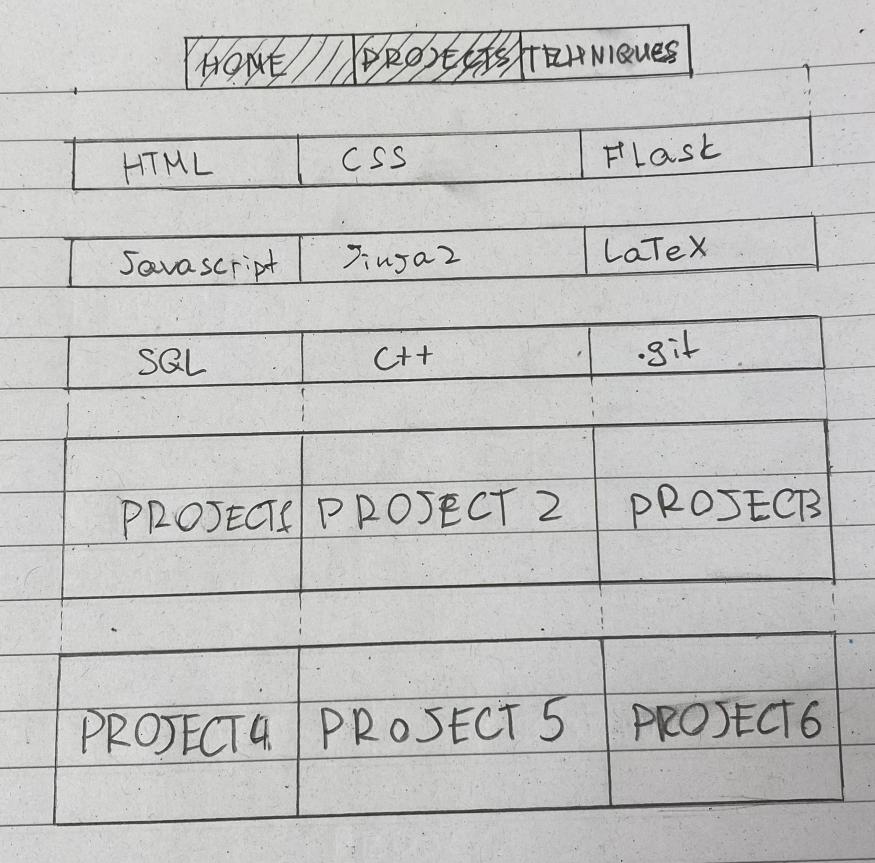 HOME PROJECTS TECHNIQUES
HTML CSS Flask
Javascript Jinja2 LaTeX
SQL C++ .git
PROJECT1 PROJECT 2 PROJECT3
PROJECT4 PROJECT 5 PROJECT6